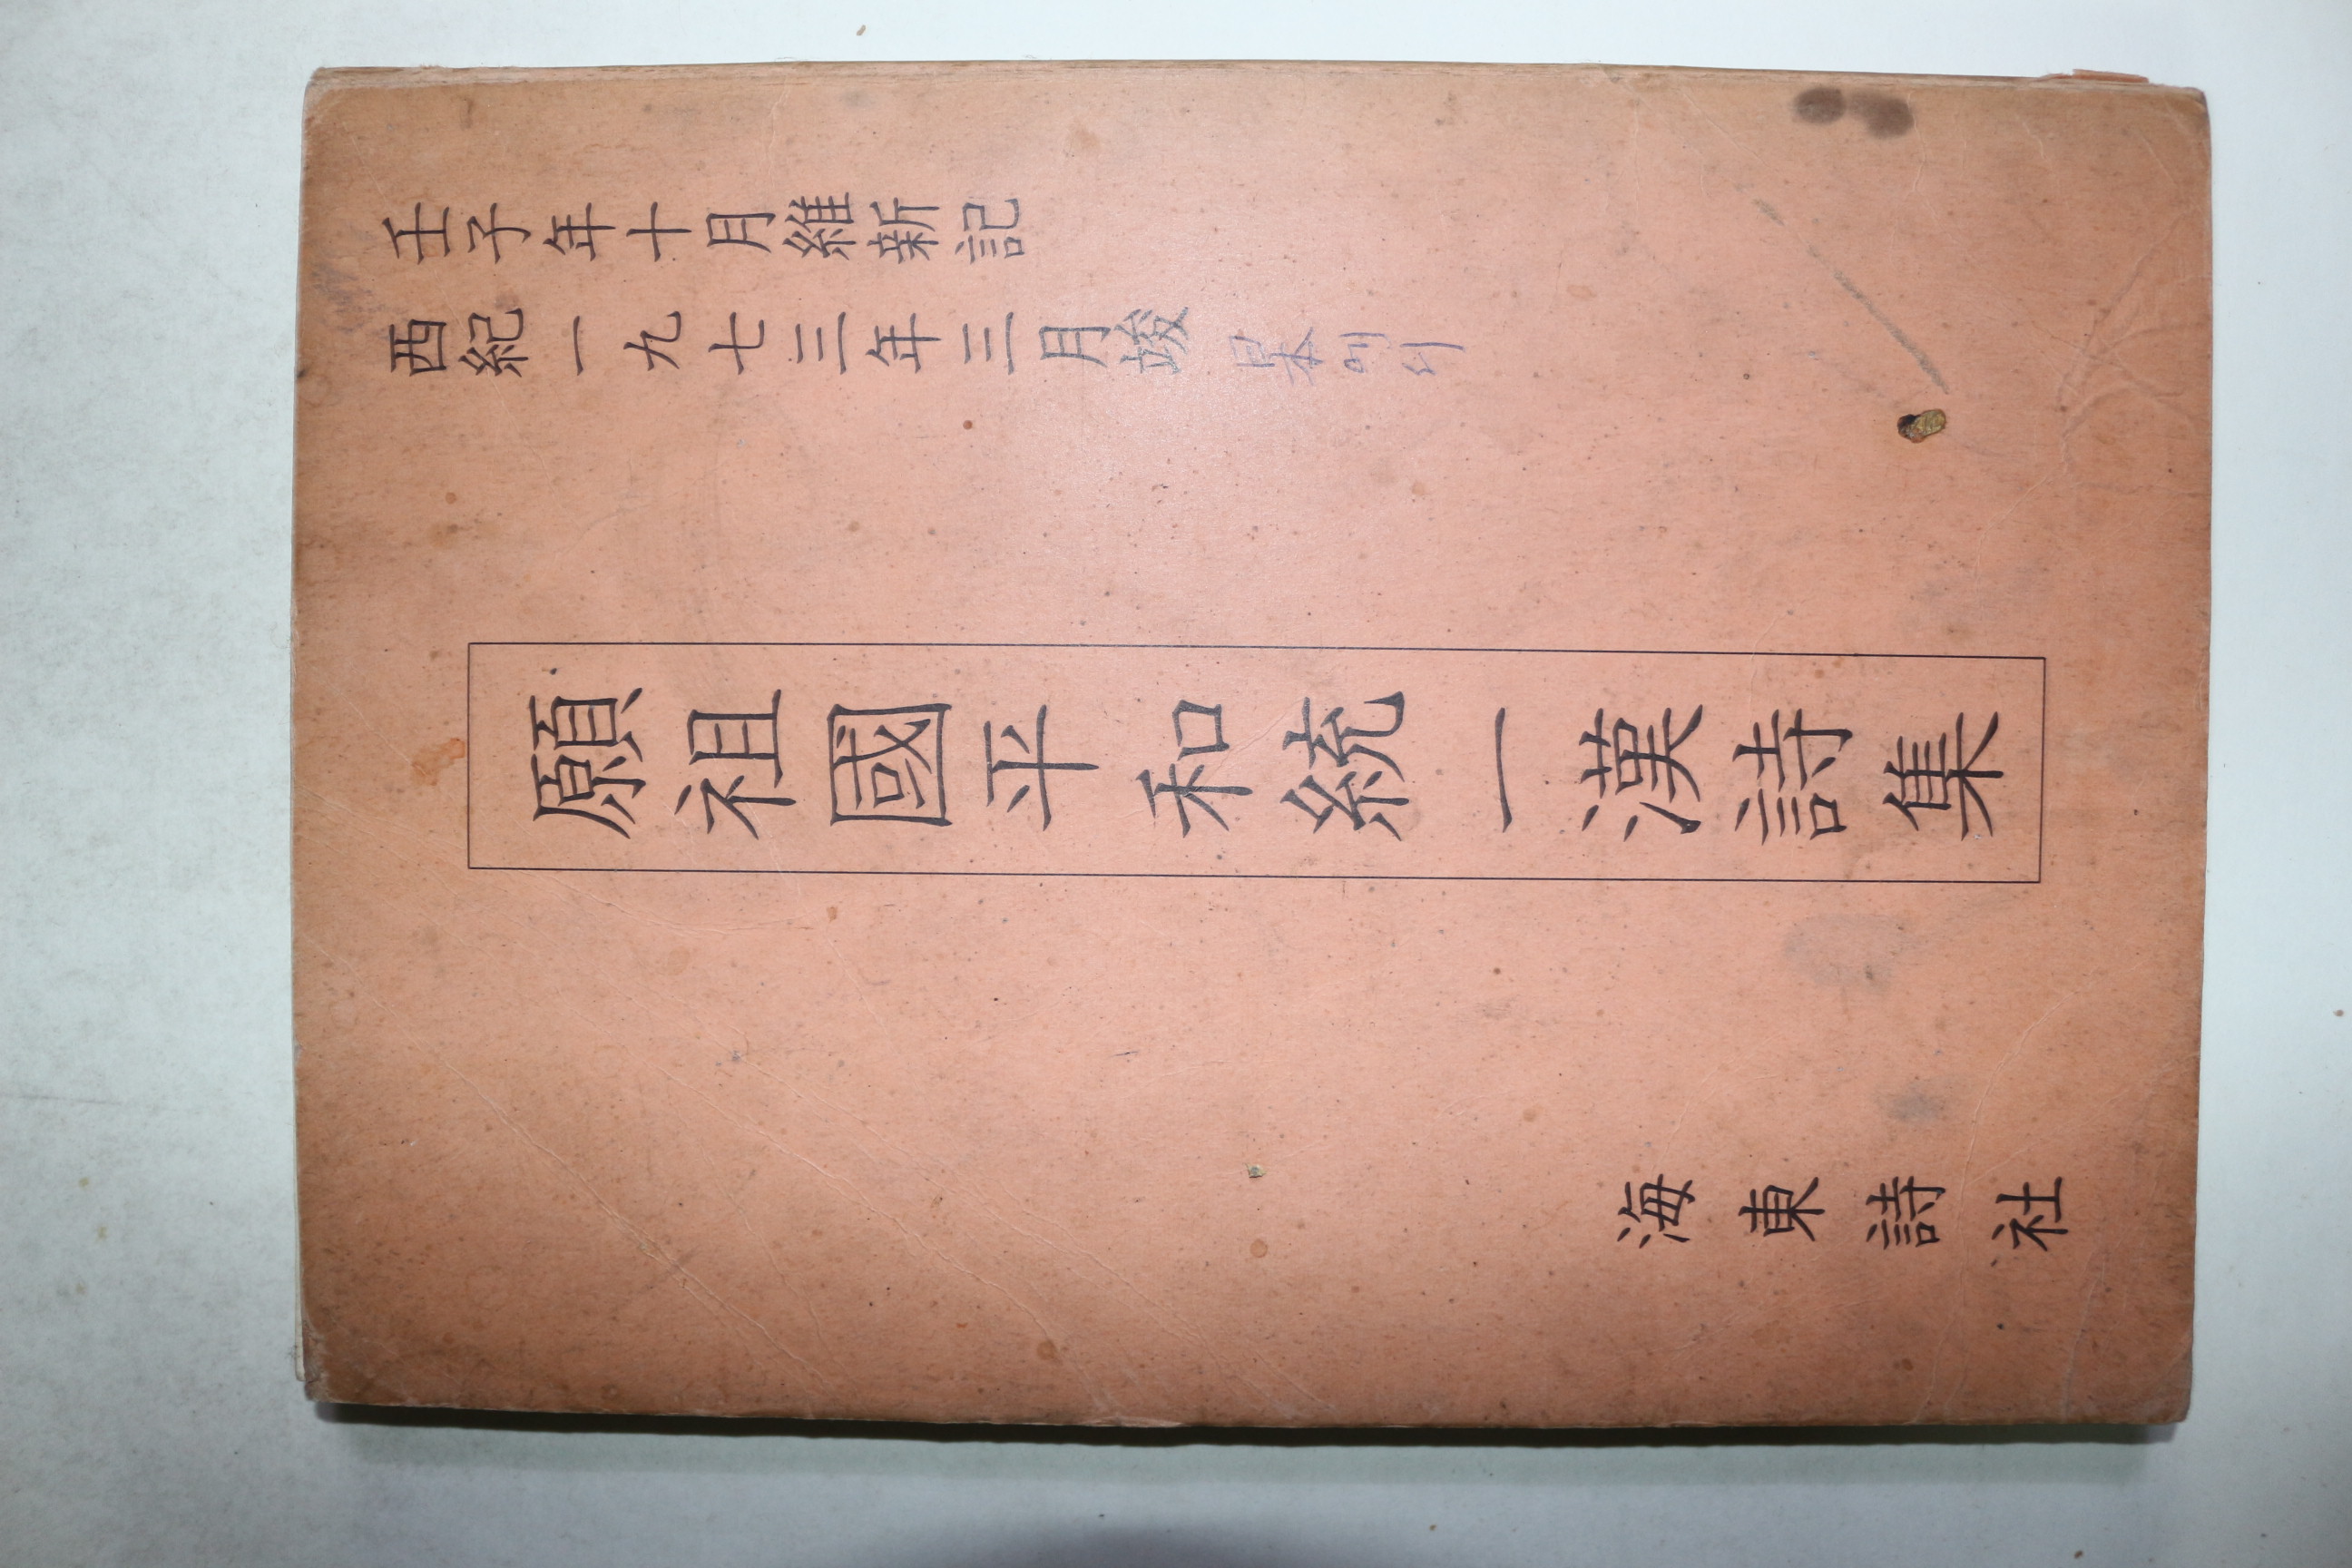 壬子年十月維新記
西紀一九七三年三月竣 日本에서
願祖國平和統一漢詩集
海東詩社